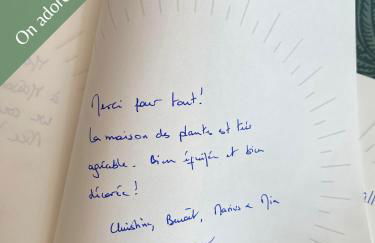 On adore
Merci pour tout!
La maison des plantes est très
agréable. Bien équipée et bien
décorée!
Christine, Benoît, Marius &